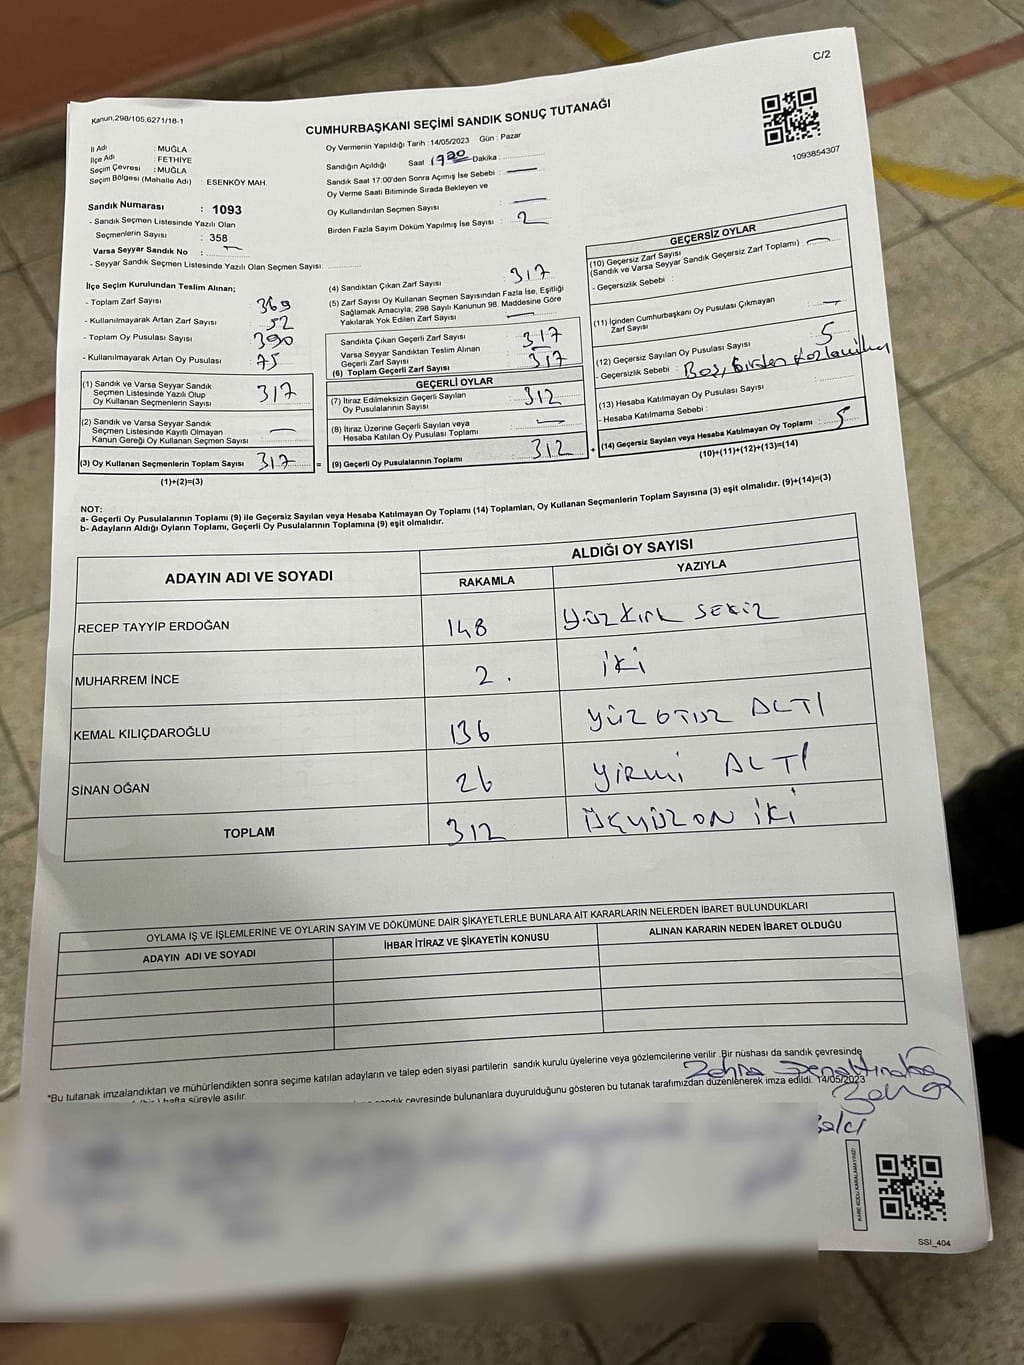 C/2
Kanun,298/105,6271/18-1
CUMHURBAŞKANI SEÇİMİ SANDIK SONUÇ TUTANAĞI
1093854307
İl Adı : MUĞLA
İlçe Adı : FETHİYE
Seçim Çevresi : MUĞLA
Seçim Bölgesi (Mahalle Adı) : ESENKÖY MAH.
Sandık Numarası : 1093
- Sandık Seçmen Listesinde Yazılı Olan
Seçmenlerin Sayısı : 358
Varsa Seyyar Sandık No : —
- Seyyar Sandık Seçmen Listesinde Yazılı Olan Seçmen Sayısı:
Oy Vermenin Yapıldığı Tarih : 14/05/2023 Gün : Pazar
Sandığın Açıldığı Saat Dakika :
Sandık Saat 17:00'den Sonra Açımış İse Sebebi : —
Oy Verme Saati Bitiminde Sırada Bekleyen ve
Oy Kullandırılan Seçmen Sayısı : —
Birden Fazla Sayım Döküm Yapılmış İse Sayısı : 2
İlçe Seçim Kurulundan Teslim Alınan;
- Toplam Zarf Sayısı : 369
- Kullanılmayarak Artan Zarf Sayısı : 52
- Toplam Oy Pusulası Sayısı : 390
- Kullanılmayarak Artan Oy Pusulası : 75
(1) Sandık ve Varsa Seyyar Sandık
Seçmen Listesinde Yazılı Olup
Oy Kullanan Seçmenlerin Sayısı : 317
(2) Sandık ve Varsa Seyyar Sandık
Seçmen Listesinde Kayıtlı Olmayan
Kanun Gereği Oy Kullanan Seçmen Sayısı : —
(3) Oy Kullanan Seçmenlerin Toplam Sayısı : 317
(1)+(2)=(3)
(4) Sandıktan Çıkan Zarf Sayısı : 317
(5) Zarf Sayısı Oy Kullanan Seçmen Sayısından Fazla İse, Eşitliği
Sağlamak Amacıyla, 298 Sayılı Kanunun 98. Maddesine Göre
Yakılarak Yok Edilen Zarf Sayısı : —
Sandıkta Çıkan Geçerli Zarf Sayısı : 317
Varsa Seyyar Sandıktan Teslim Alınan
Geçerli Zarf Sayısı : —
(6) Toplam Geçerli Zarf Sayısı : 317
GEÇERLİ OYLAR
(7) İtiraz Edilmeksizin Geçerli Sayılan
Oy Pusulalarının Sayısı : 312
(8) İtiraz Üzerine Geçerli Sayılan veya
Hesaba Katılan Oy Pusulası Toplamı : —
(9) Geçerli Oy Pusulalarının Toplamı : 312
GEÇERSİZ OYLAR
(10) Geçersiz Zarf Sayısı
(Sandık ve Varsa Seyyar Sandık Geçersiz Zarf Toplamı) : —
- Geçersizlik Sebebi :
(11) İçinden Cumhurbaşkanı Oy Pusulası Çıkmayan
Zarf Sayısı : —
(12) Geçersiz Sayılan Oy Pusulası Sayısı : 5
- Geçersizlik Sebebi : Boş,
(13) Hesaba Katılmayan Oy Pusulası Sayısı :
- Hesaba Katılmama Sebebi :
(14) Geçersiz Sayılan veya Hesaba Katılmayan Oy Toplamı : 5
(10)+(11)+(12)+(13)=(14)
NOT:
a- Geçerli Oy Pusulalarının Toplamı (9) ile Geçersiz Sayılan veya Hesaba Katılmayan Oy Toplamı (14) Toplamları, Oy Kullanan Seçmenlerin Toplam Sayısına (3) eşit olmalıdır. (9)+(14)=(3)
b- Adayların Aldığı Oyların Toplamı, Geçerli Oy Pusulalarının Toplamına (9) eşit olmalıdır.
ADAYIN ADI VE SOYADI ALDIĞI OY SAYISI
RAKAMLA YAZIYLA
RECEP TAYYİP ERDOĞAN 148 yüzkırk SEKİZ
MUHARREM İNCE 2. iki
KEMAL KILIÇDAROĞLU 136 YÜZ OTUZ ALTI
SİNAN OĞAN 26 YİRMİ ALTI
TOPLAM 312 ÜÇYÜZ ON İKİ
OYLAMA İŞ VE İŞLEMLERİNE VE OYLARIN SAYIM VE DÖKÜMÜNE DAİR ŞİKAYETLERLE BUNLARA AİT KARARLARIN NELERDEN İBARET BULUNDUKLARI
ADAYIN ADI VE SOYADI İHBAR İTİRAZ VE ŞİKAYETİN KONUSU ALINAN KARARIN NEDEN İBARET OLDUĞU
*Bu tutanak imzalandıktan ve mühürlendikten sonra seçime katılan adayların ve talep eden siyasi partilerin sandık kurulu üyelerine veya gözlemcilerine verilir .Bir nüshası da sandık çevresinde
(bir) hafta süreyle asılır.
sandık çevresinde bulunanlara duyurulduğunu gösteren bu tutanak tarafımızdan düzenlenerek imza edildi. 14/05/2023
Zehra
KARE KODU KARALAMAYINIZ!
SSİ_404